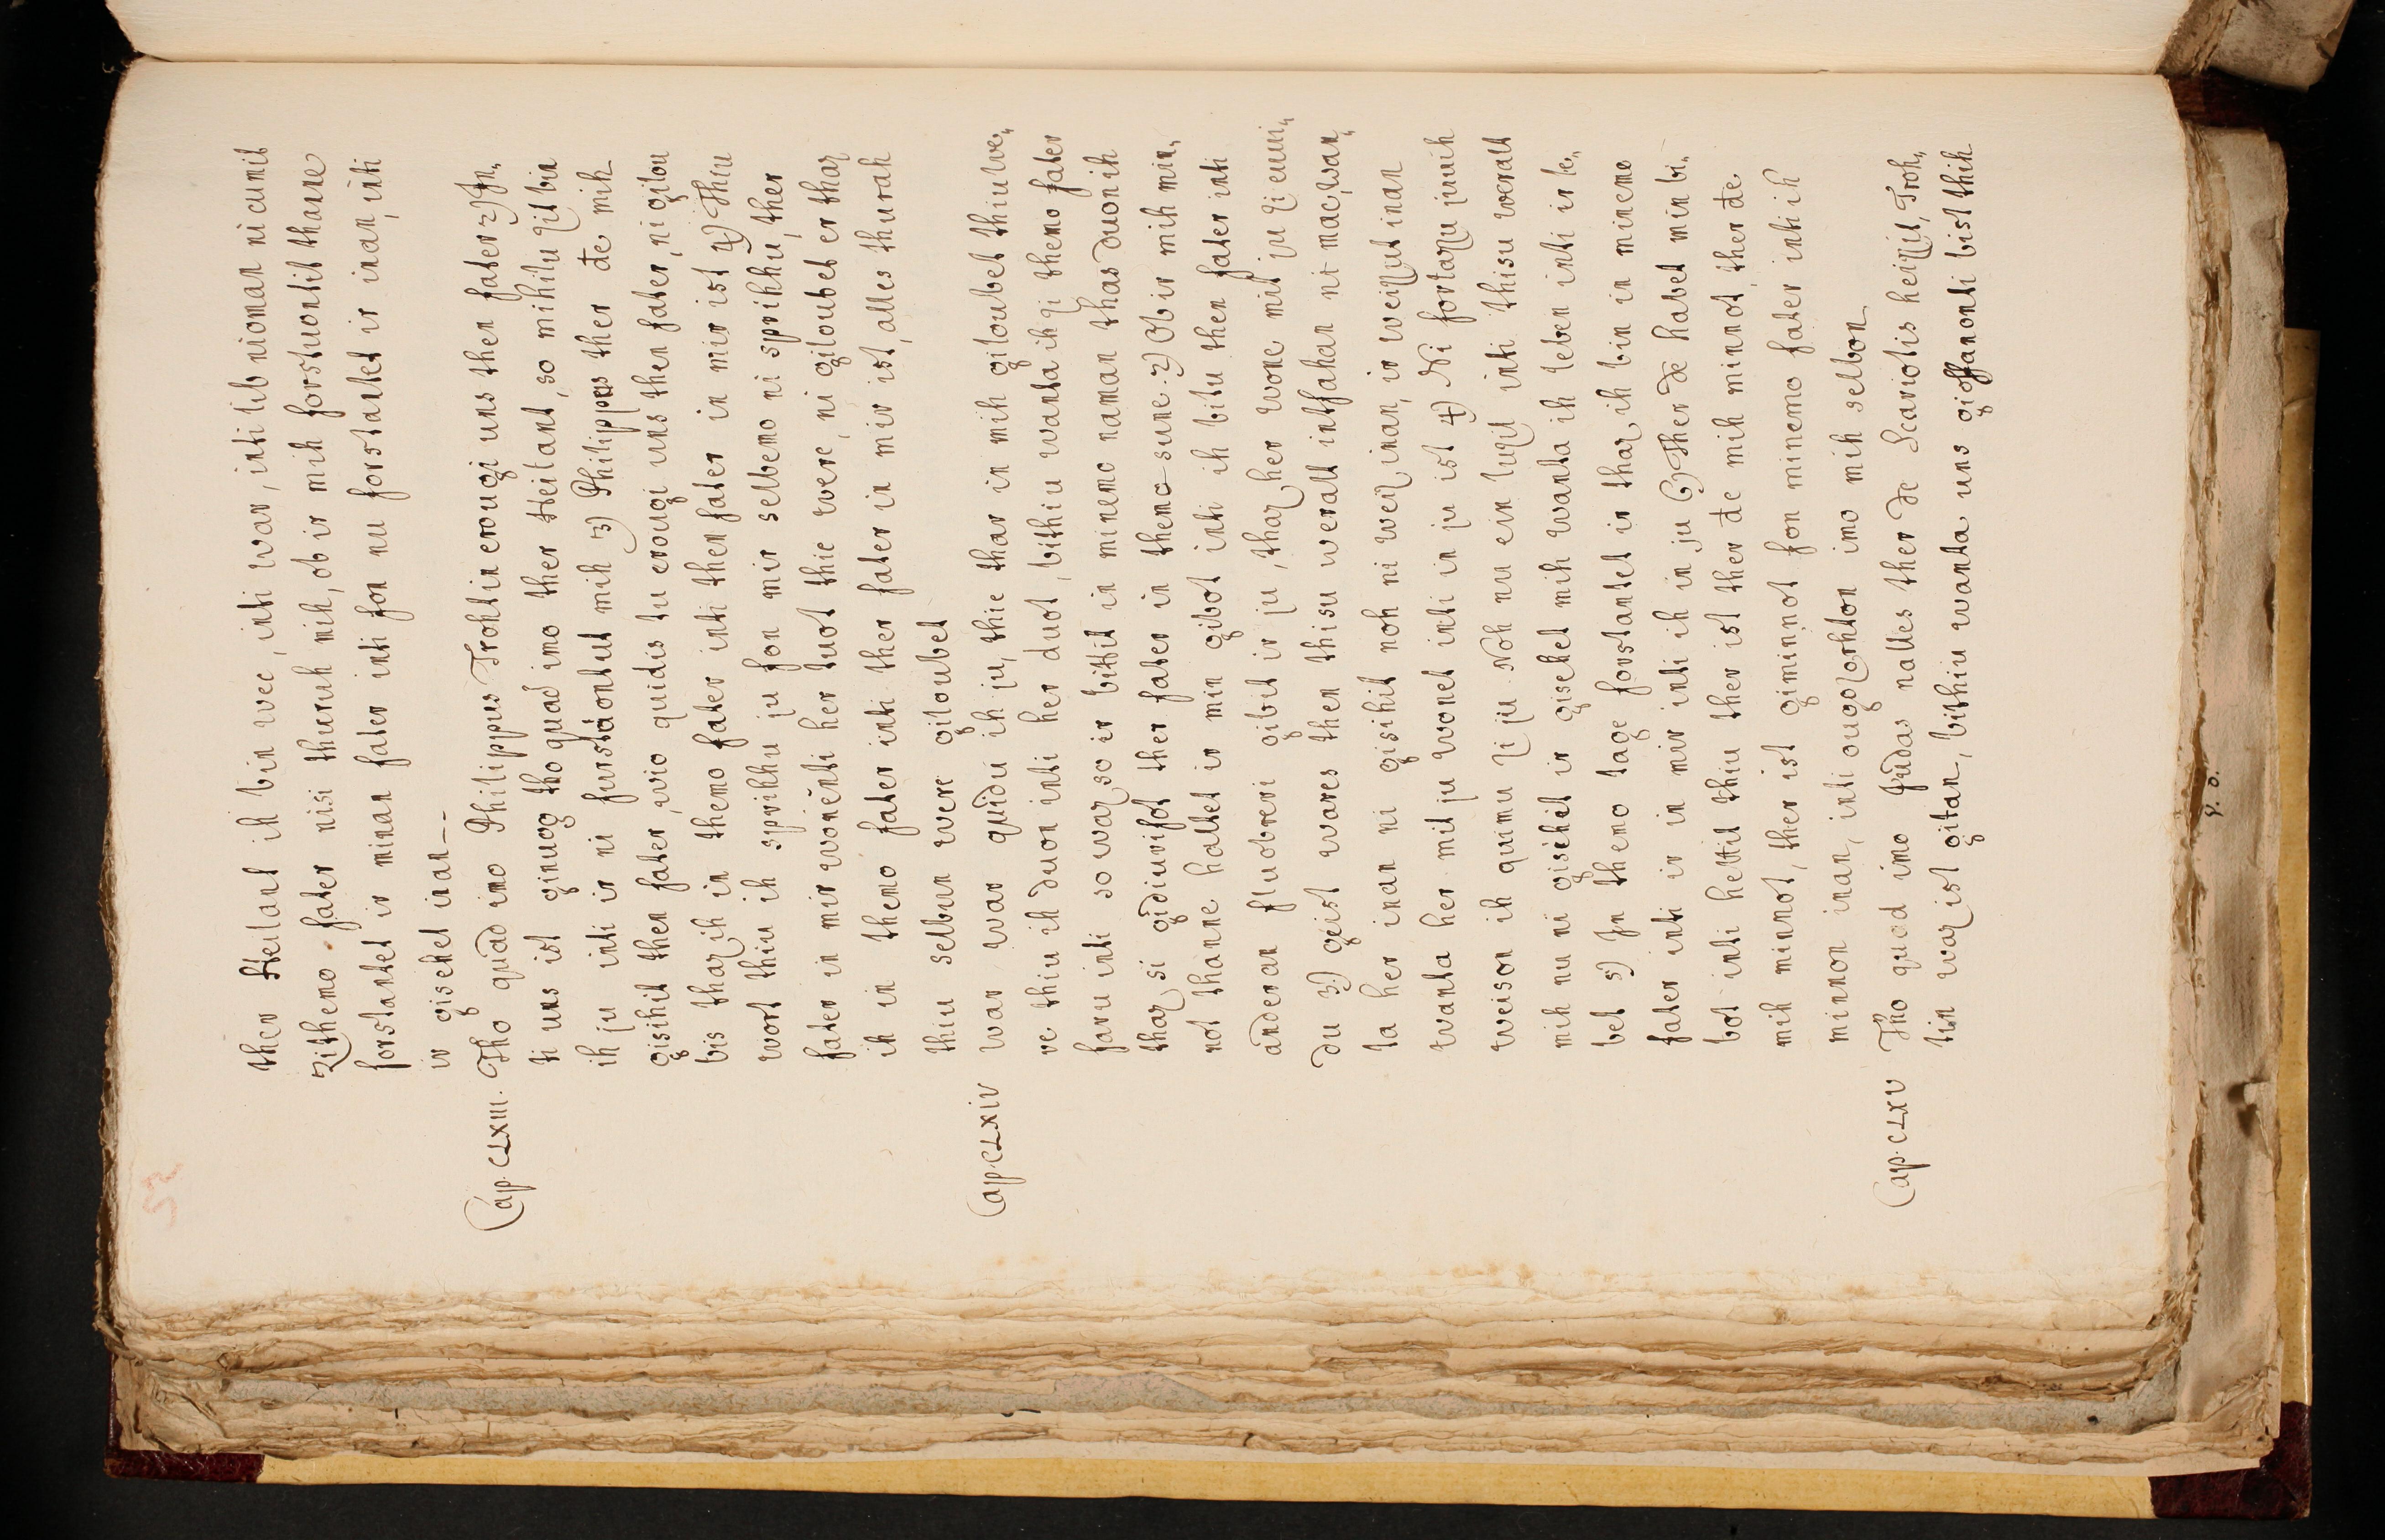 52
ther Heilant ih bin wec, inti war, inti lib nioman ni cumit
zi themo fater nisi thuruh mih, ob ir mih forstuontit thanne
forstantet ir minan fater inti fon nu forstantet ir inan, inti
ir gisehet inan--
Cap. CLXIII. Tho quad imo Philippus Trohtin erougi uns then fater 2) Jn„
ti uns ist ginuog tho quad imo ther Heilant, so mihilu zit bin
ih ju inti ir ni furstáontut mih 3) Philippus ther de mih
gisihit then fater, wio quidis tu erougi uns then fater, ni gilou
bis thaz ih in themo fater inti then fater in mir ist 4) Thiu
wort thiu ih sprihhu ju fon mir selbemo ni sprihhu, ther
fater in mir wonenti her tuot thie were, ni giloubet er thaz
ih in themo fater inti ther fater in mir ist, alles thurah
thiu selbun were giloubet
Cap. CLXIV war war quidu ih ju, thie thar in mih giloubet thiu we„
re thiu ih duon inti her duot, bithiu wanta ih zi themo fater
faru inti so waz so ir bittit in minemo naman thas duon ih
thaz si gidiurisot ther fater in themo sune. 2) Ob ir mih min„
not thanne haltet ir min gibot inti ih bitu then fater inti
anderan fluobreri gibit ir ju, thaz her wone mit ju zi euui„
du 3) geist wares then thisu weralt intfahan ni mac, wan„
ta her inan ni gisihit noh ni weiz inan, ir weizut inan
wanta her mit ju wonet inti in ju ist 4) Ni forlazu juuih
weison ih quimu zi ju Noh nu ein luzil inti thisu weralt
mih nu ni gisehit ir gisehet mih wanta ih leben inti ir le„
bet 5) Jn themo tage forstantet ir thaz ih bin in minemo
fater inti ir in mir inti ih in ju 6) Ther de habet min bi„
bot inti heltit thiu ther ist ther de mih minnot, ther de
mih minnot, ther ist giminnot fon minemo fater inti ih
minnon inan, inti ougozorhton imo mih selbon
Cap. CLXV Tho quad imo Judas nalles ther de Scariotis heizzit, Troh„
tin waz ist gitan, bithiu wanta uns gioffanonti bist thih